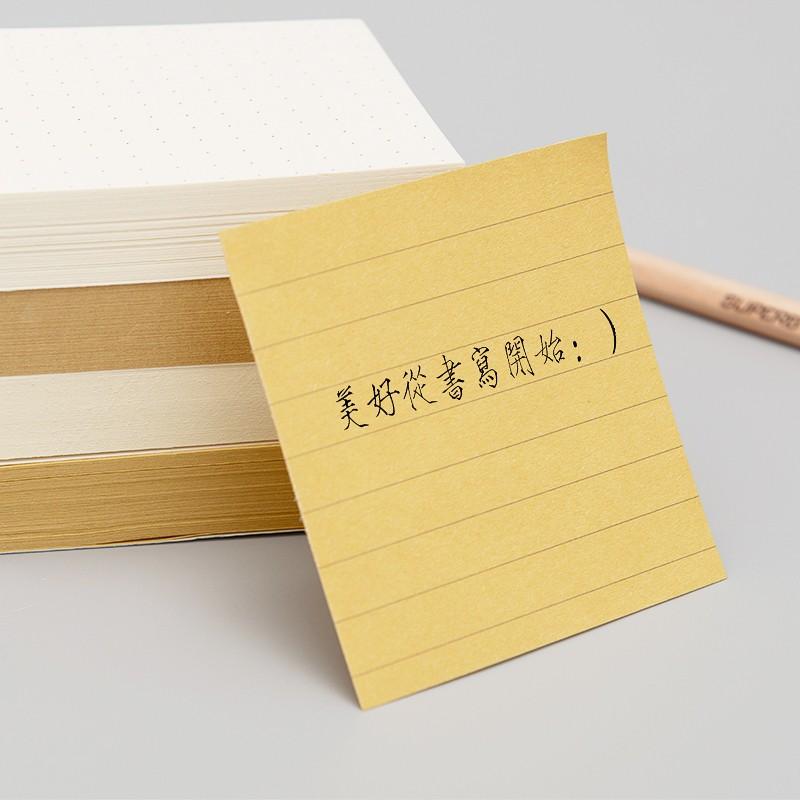 美好從書寫開始：)
SUPERB